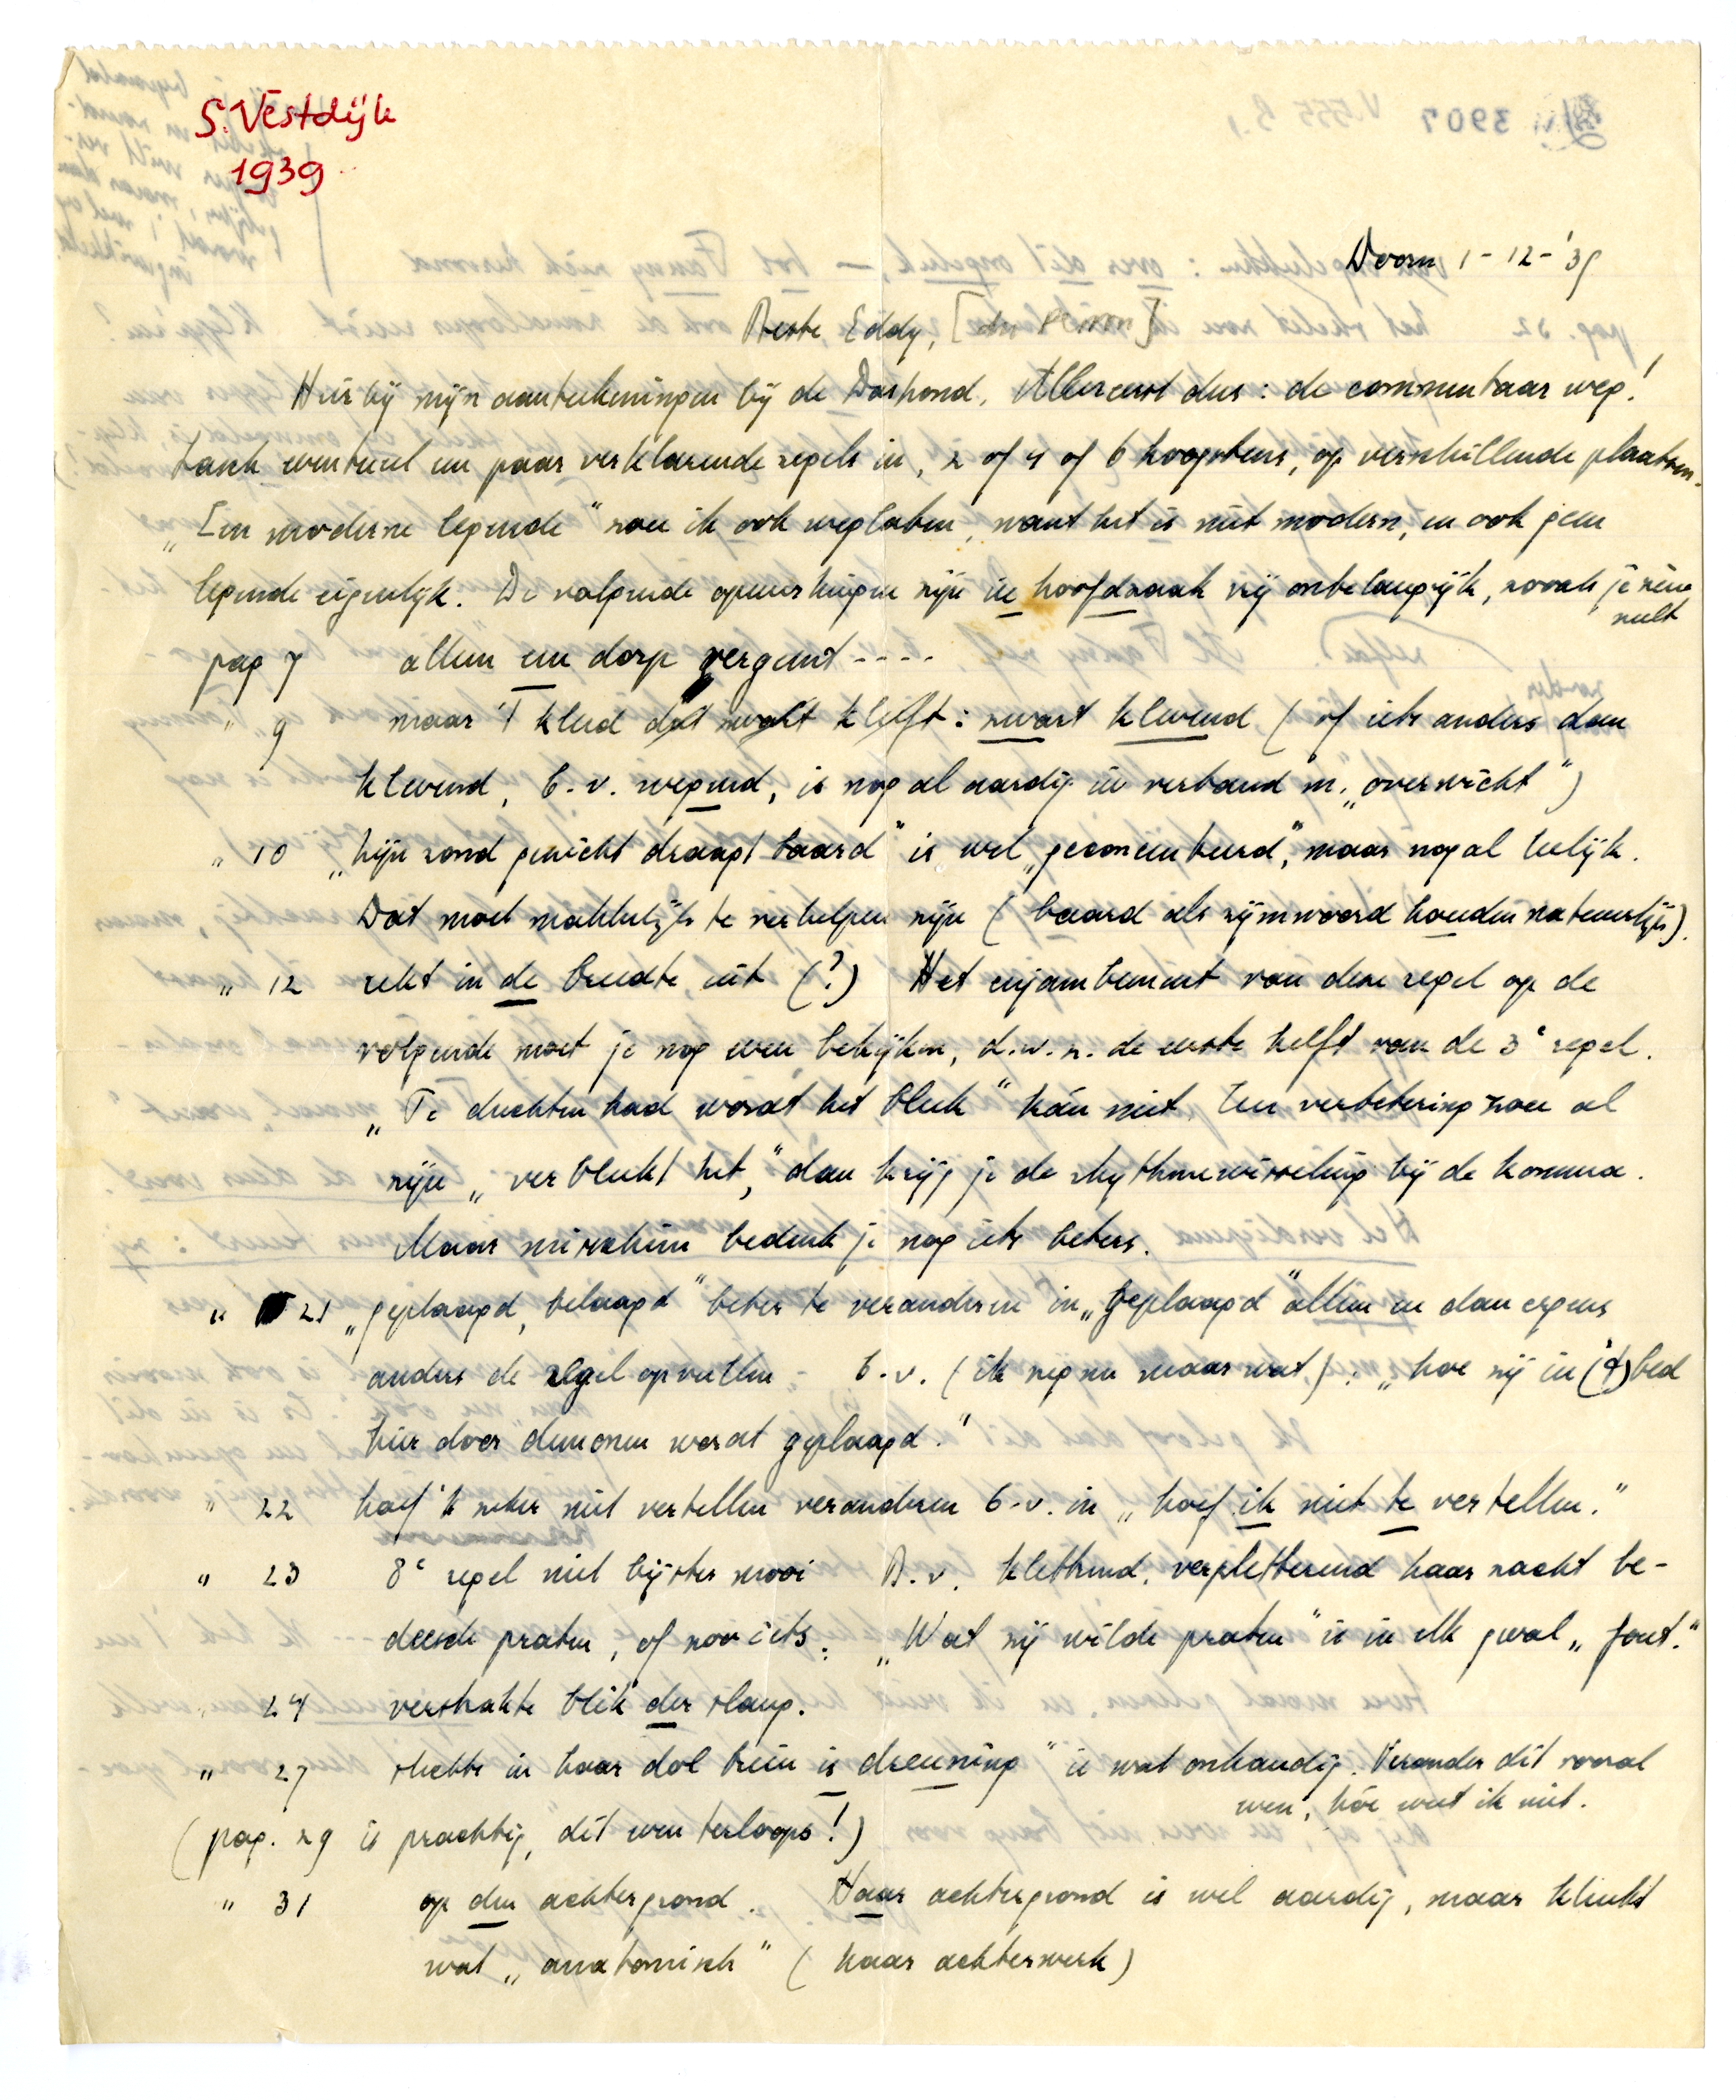 S. Vestdijk
1939
V.555 B.1
3907
Doorn 1-12-'39
Beste Eddy, [du Perron]
Hierbij mijn aanteekeningen bij de Dashond. Allereerst dus: de commentaar weg!
Lasch eventueel een paar verklarende regels in, 2 of 4 of 6 hoogstens, op verschillende plaatsen.
„Een moderne legende" zou ik ook weglaten, want het is niet modern, en ook geen
legende eigenlijk. De volgende opmerkingen zijn in hoofdzaak vrij onbelangrijk, zooals je zien
zult
pag 7 alleen een dorp vergunt ----
" 9 maar 't kleed dat zwart kleeft: zwart klevend (of iets anders dan
klevend, b.v. wegend, is nogal aardig in verband m. „overwicht")
" 10 „Zijn rond gewicht draagt baard" is wel „geconcentreerd", maar nogal leelijk.
Dat moet makkelijk te verhelpen zijn (baard als rijmwoord houden natuurlijk).
" 12 rekt in de breedte uit (?) Het enjambement van deze regel op de
volgende moet je nog even bekijken, d.w.z. de eerste helft van de 3e regel.
„Te duchten had wordt het bleek" kán niet. Een verbetering zou al
zijn „verbleekt het," dan krijg je de rhythmewisseling bij de komma.
Maar misschien bedenk je nog iets beters.
" 21 „geplaagd, belaagd" beter te veranderen in „geplaagd" alleen en dan ergens
anders de regel opvullen, b.v. (ik zeg nu maar wat): „hoe zij in ('t) bed
hier door demonen werdt geplaagd."
" 22 hoef 'k zeker niet vertellen veranderen b.v. in „hoef ik niet te vertellen."
" 23 8e regel niet bijster mooi B.v. kletterend, verpletterend haar zacht be-
deesde praten, of zooiets. „Wat zij wilde praten" is in elk geval „fout."
" 24 verstrakte blik der slang.
" 27 schette in haar dol brein is dreuning" is wat onhandig. Verander dit vooral
even, hóe weet ik niet.
(pag. 29 is prachtig, dit even terloops!)
" 31 op den achtergrond. Haar achtergrond is wel aardig, maar klinkt
wat „anatomisch" (haar achterwerk)